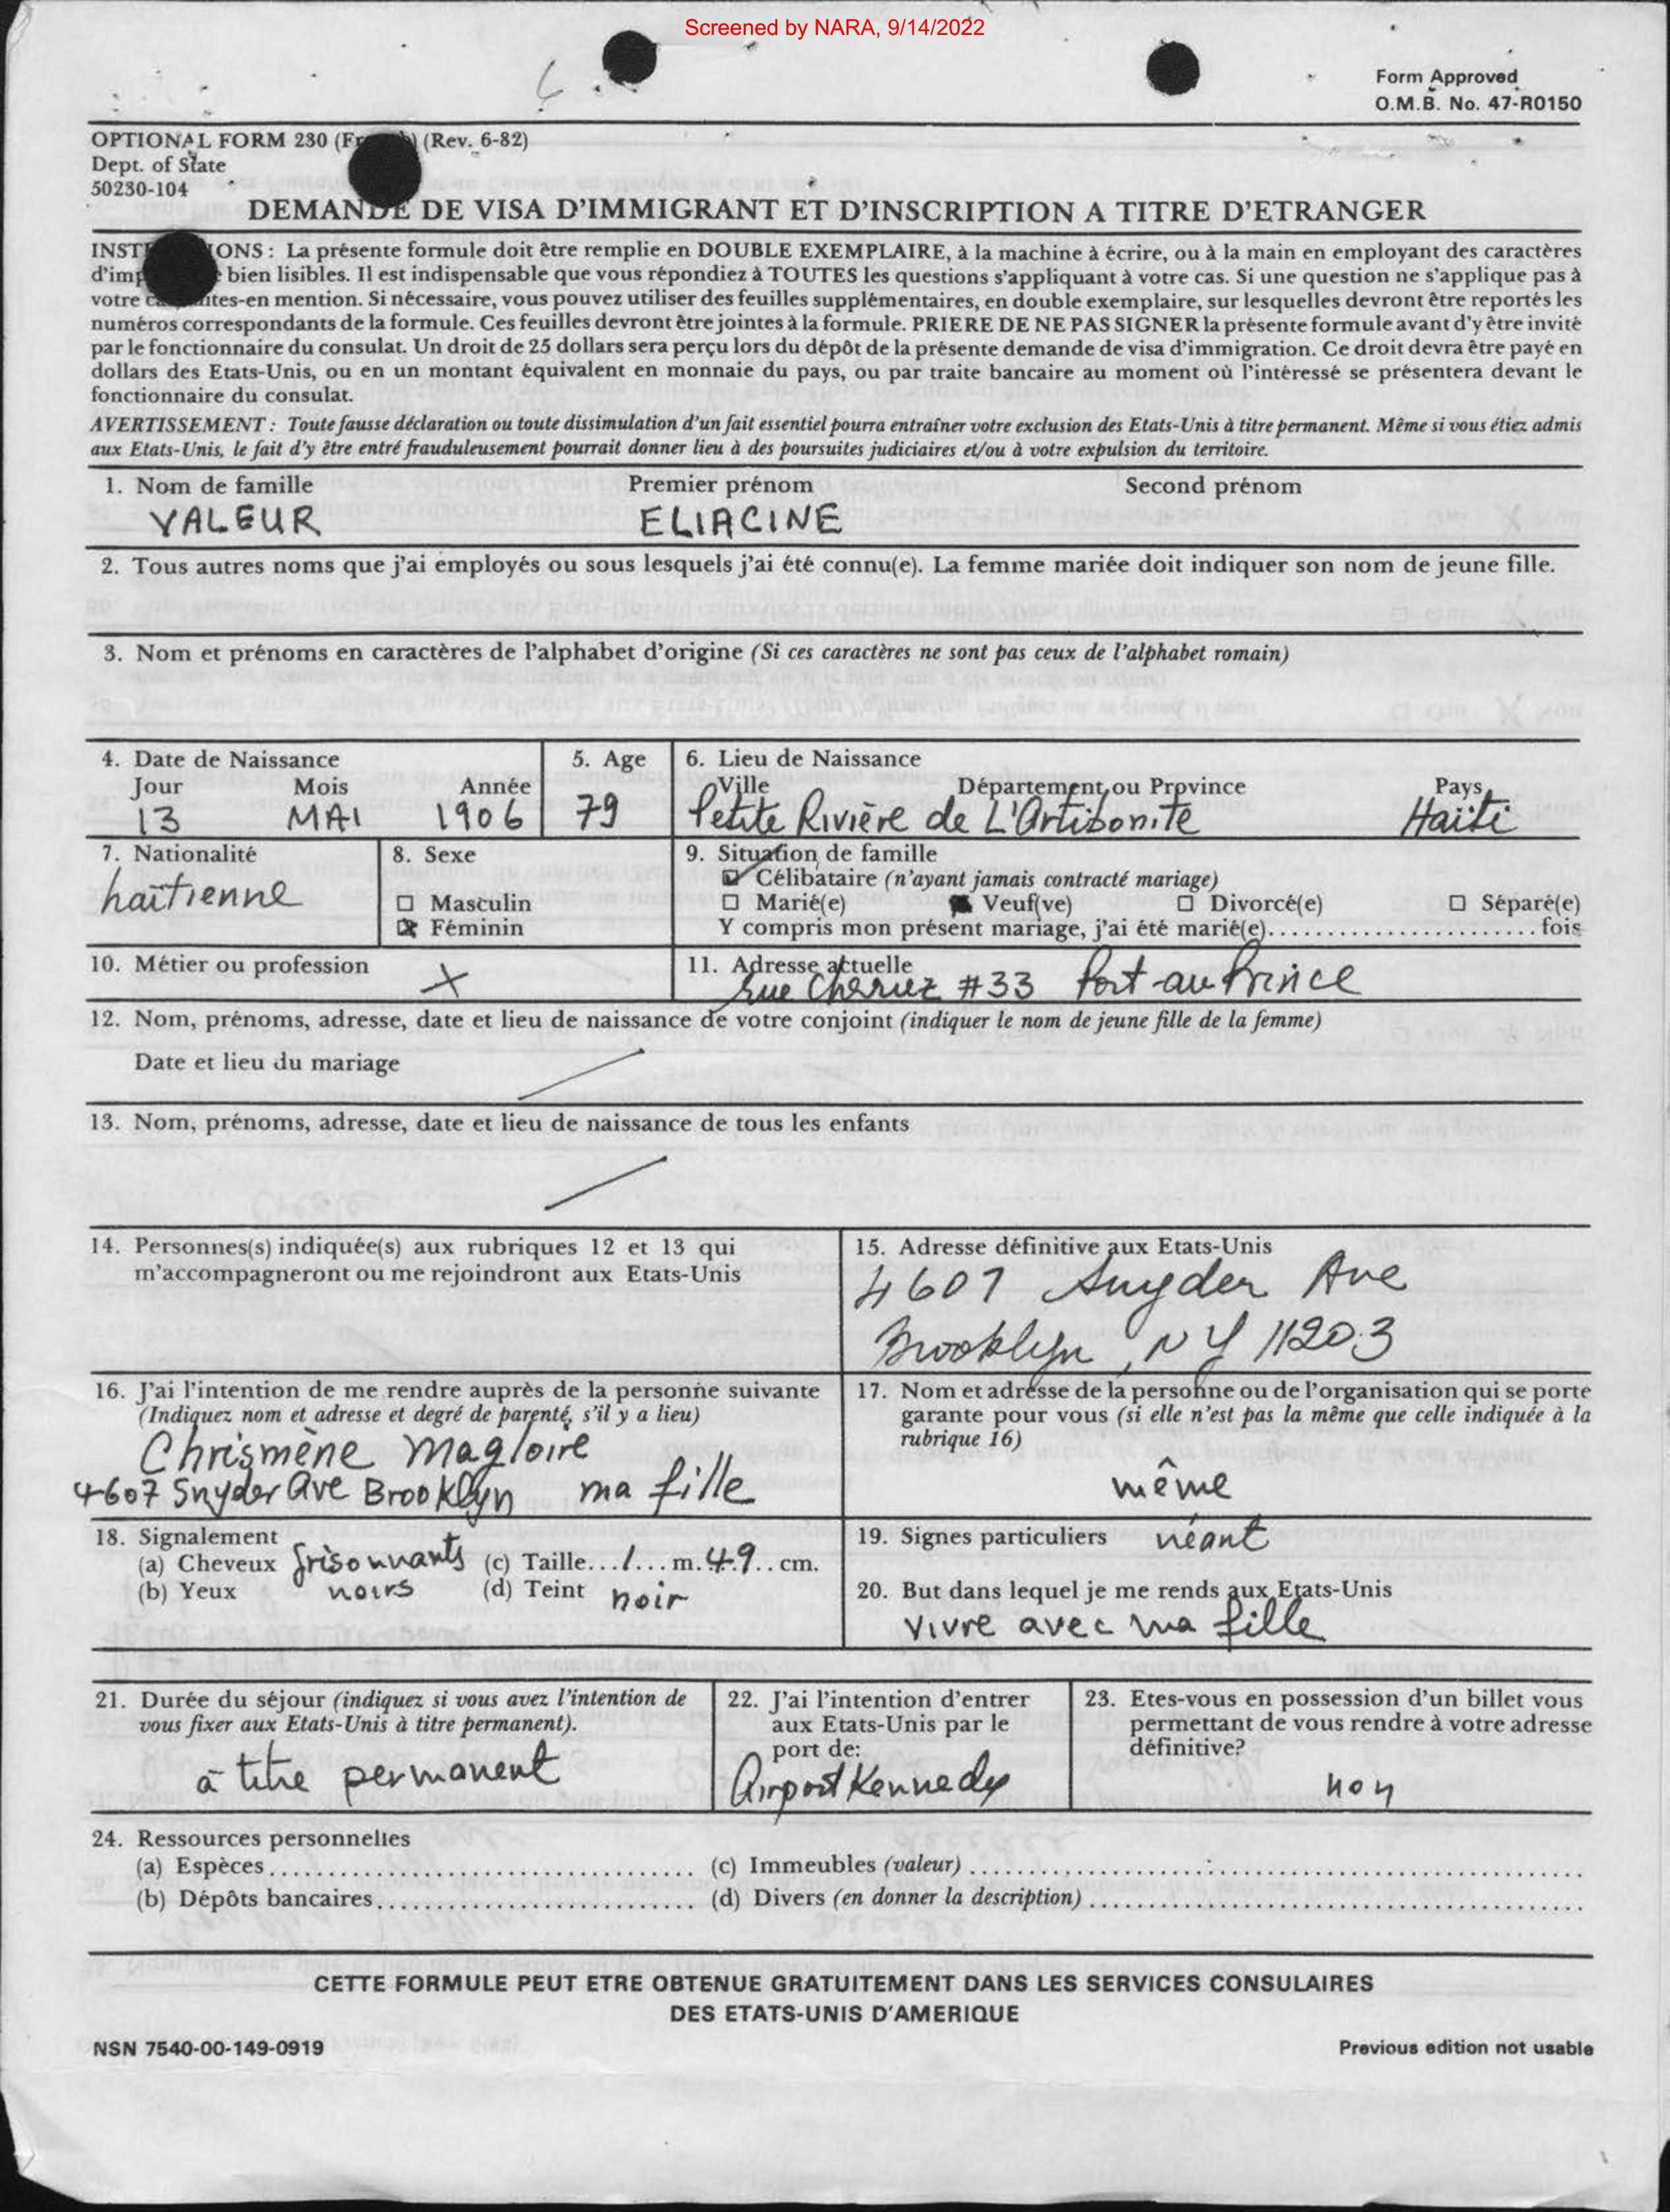 Screened by NARA, 9/14/2022
Form Approved
O.M.B. No. 47-R0150
OPTIONAL FORM 230 (Fr) (Rev. 6-82)
Dept. of State
50230-104
DEMANDE DE VISA D'IMMIGRANT ET D'INSCRIPTION A TITRE D'ETRANGER
INST IONS : La présente formule doit être remplie en DOUBLE EXEMPLAIRE, à la machine à écrire, ou à la main en employant des caractères
d'imp bien lisibles. Il est indispensable que vous répondiez à TOUTES les questions s'appliquant à votre cas. Si une question ne s'applique pas à
votre ites-en mention. Si nécessaire, vous pouvez utiliser des feuilles supplémentaires, en double exemplaire, sur lesquelles devront être reportés les
numéros correspondants de la formule. Ces feuilles devront être jointes à la formule. PRIERE DE NE PAS SIGNER la présente formule avant d'y être invité
par le fonctionnaire du consulat. Un droit de 25 dollars sera perçu lors du dépôt de la présente demande de visa d'immigration. Ce droit devra être payé en
dollars des Etats-Unis, ou en un montant équivalent en monnaie du pays, ou par traite bancaire au moment où l'intéressé se présentera devant le
fonctionnaire du consulat.
AVERTISSEMENT : Toute fausse déclaration ou toute dissimulation d'un fait essentiel pourra entraîner votre exclusion des Etats-Unis à titre permanent. Même si vous étiez admis
aux Etats-Unis, le fait d'y être entré frauduleusement pourrait donner lieu à des poursuites judiciaires et/ou à votre expulsion du territoire.
1. Nom de famille Premier prénom Second prénom
VALEUR ELIACINE
2. Tous autres noms que j'ai employés ou sous lesquels j'ai été connu(e). La femme mariée doit indiquer son nom de jeune fille.
3. Nom et prénoms en caractères de l'alphabet d'origine (Si ces caractères ne sont pas ceux de l'alphabet romain)
4. Date de Naissance 5. Age 6. Lieu de Naissance
Jour Mois Année Ville Département ou Province Pays
13 MAI 1906 79 Petite Rivière de L'Artibonite Haïti
7. Nationalité 8. Sexe 9. Situation de famille
haïtienne
☑ Célibataire (n'ayant jamais contracté mariage)
☐ Masculin ☐ Marié(e) Veuf(ve) ☐ Divorcé(e) ☐ Séparé(e)
☒ Féminin Y compris mon présent mariage, j'ai été marié(e)....................... fois
10. Métier ou profession X 11. Adresse actuelle
Rue Cheriez #33 Port-au Prince
12. Nom, prénoms, adresse, date et lieu de naissance de votre conjoint (indiquer le nom de jeune fille de la femme)
Date et lieu du mariage
13. Nom, prénoms, adresse, date et lieu de naissance de tous les enfants
14. Personnes(s) indiquée(s) aux rubriques 12 et 13 qui
m'accompagneront ou me rejoindront aux Etats-Unis
15. Adresse définitive aux Etats-Unis
4607 Snyder Ave
Brooklyn, NY 11203
16. J'ai l'intention de me rendre auprès de la personne suivante
(Indiquez nom et adresse et degré de parenté, s'il y a lieu)
Chrismène Magloire
4607 Snyder Ave Brooklyn ma fille
17. Nom et adresse de la personne ou de l'organisation qui se porte
garante pour vous (si elle n'est pas la même que celle indiquée à la
rubrique 16)
même
18. Signalement
(a) Cheveux frisonnants (c) Taille...1...m.49..cm.
(b) Yeux noirs (d) Teint noir
19. Signes particuliers néant
20. But dans lequel je me rends aux Etats-Unis
vivre avec ma fille
21. Durée du séjour (indiquez si vous avez l'intention de
vous fixer aux Etats-Unis à titre permanent).
à titre permanent
22. J'ai l'intention d'entrer
aux Etats-Unis par le
port de:
Airport Kennedy
23. Etes-vous en possession d'un billet vous
permettant de vous rendre à votre adresse
définitive?
non
24. Ressources personnelles
(a) Espèces.................................... (c) Immeubles (valeur)....................................................
(b) Dépôts bancaires........................... (d) Divers (en donner la description)..........................................
CETTE FORMULE PEUT ETRE OBTENUE GRATUITEMENT DANS LES SERVICES CONSULAIRES
DES ETATS-UNIS D'AMERIQUE
NSN 7540-00-149-0919 Previous edition not usable